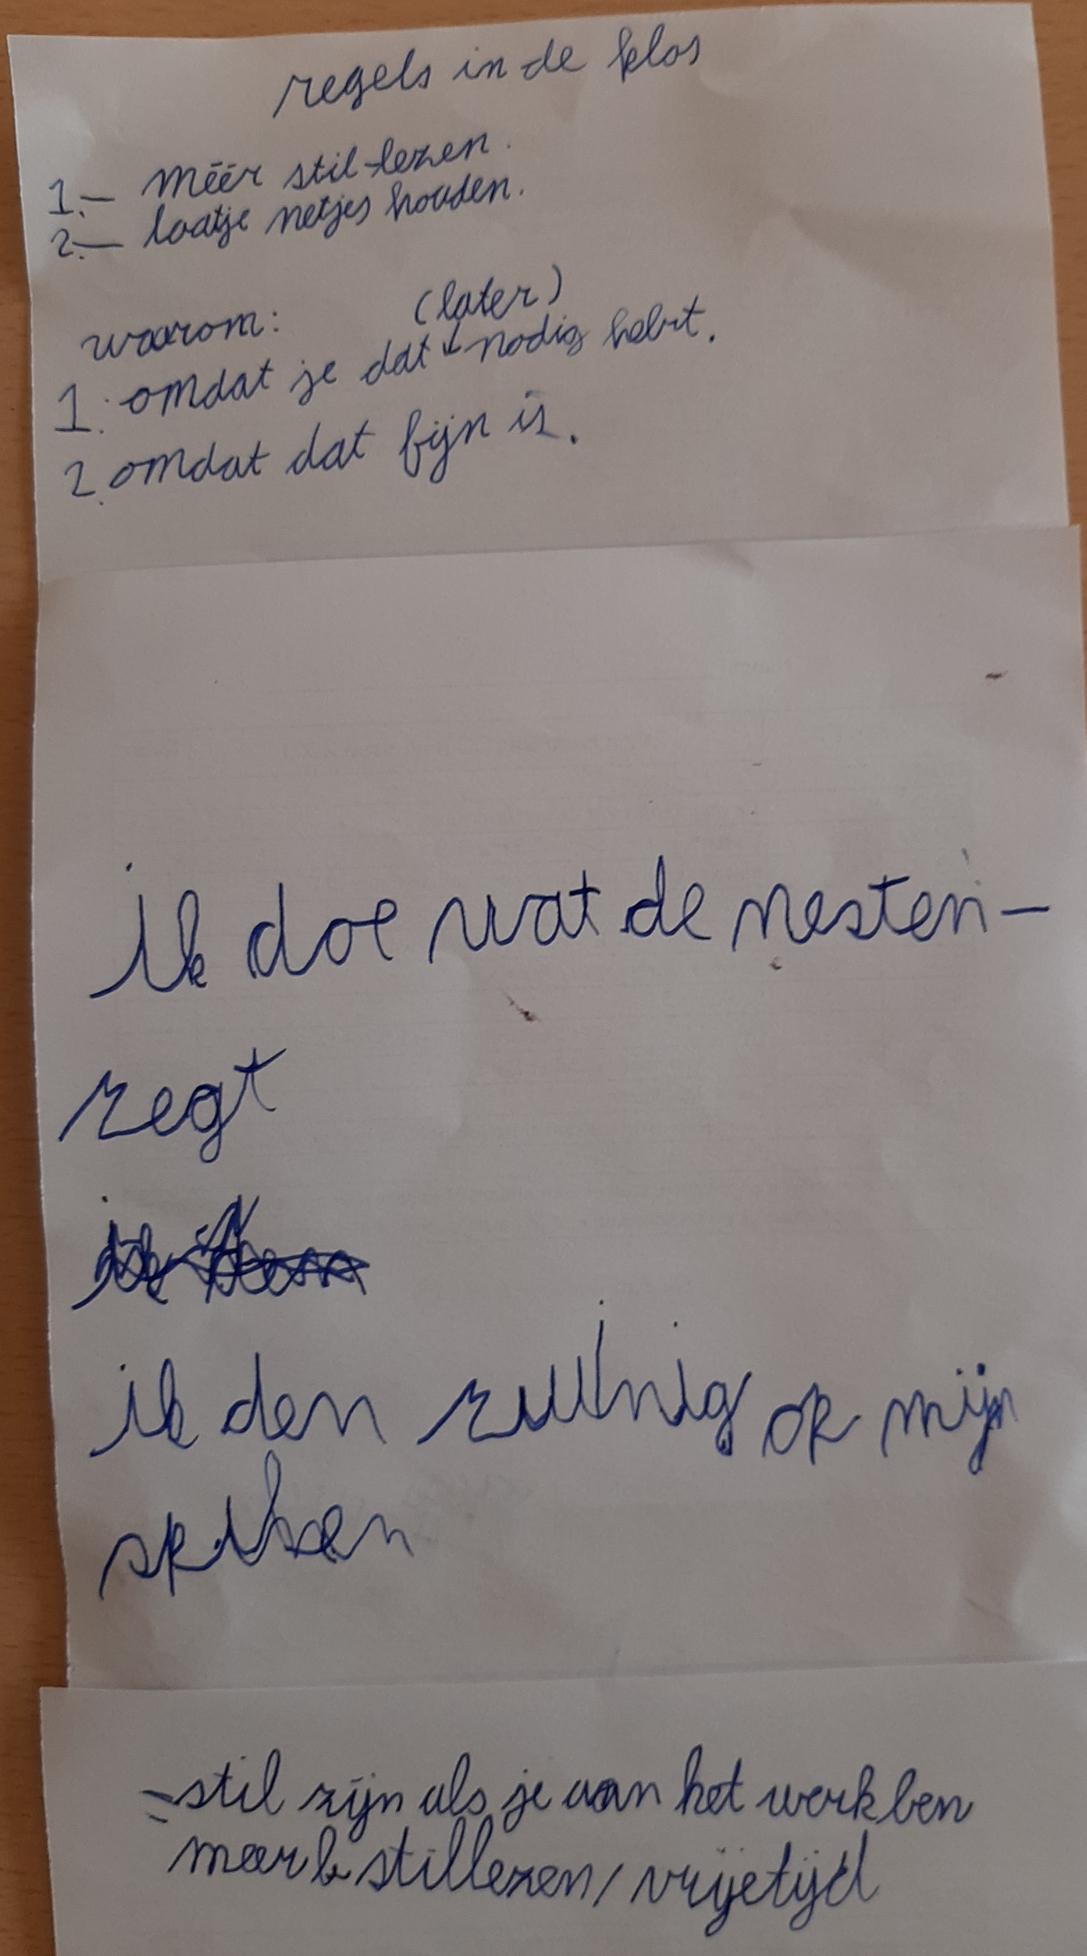 regels in de klas
1.- méér stil-lezen.
2.- laatje netjes houden.
waarom: (later)
1. omdat je dat nodig hebt.
2. omdat dat fijn is.
ik doe wat de mesteri-
zegt
ik ben zuinig op mijn
spullen
- stil zijn als je aan het werk ben
meer stillezen/vrijetijd